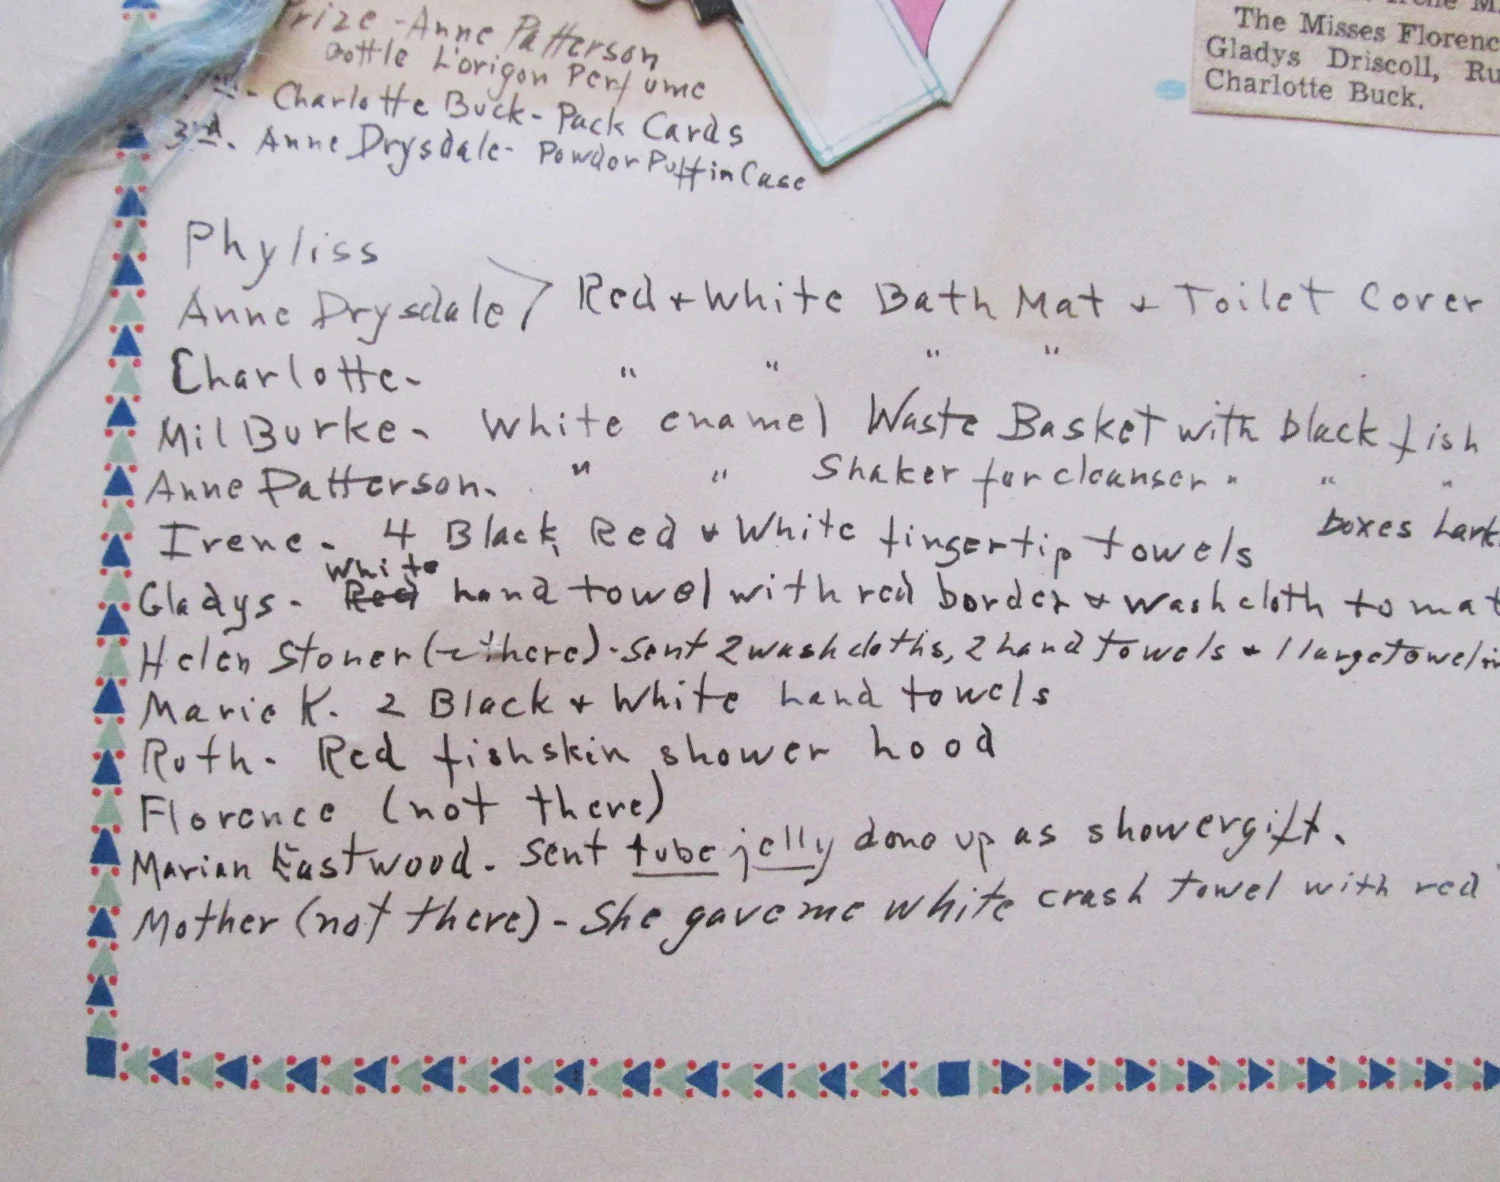 rize - Anne Patterson
Bottle L'origon Perfume
- Charlotte Buck - Pack Cards
3rd. Anne Drysdale - Powder Puff in Case
The Misses Florenc
Gladys Driscoll, Ru
Charlotte Buck.
Phyliss
Anne Drysdale > Red + White Bath Mat + Toilet Cover
Charlotte - " " " "
Mil Burke - White enamel Waste Basket with black fish
Anne Patterson. " " Shaker for cleanser " " "
Irene - 4 Black, Red + White fingertip towels boxes
White
Gladys - Red hand towel with red border + wash cloth to mat
Helen Stoner ( there) - sent 2 wash cloths, 2 hand towels + 1 large towel in
Marie K. 2 Black + White hand towels
Ruth - Red fishskin shower hood
Florence (not there)
Marian Eastwood - sent tube jelly done up as shower gift.
Mother (not there) - She gave me white crash towel with red